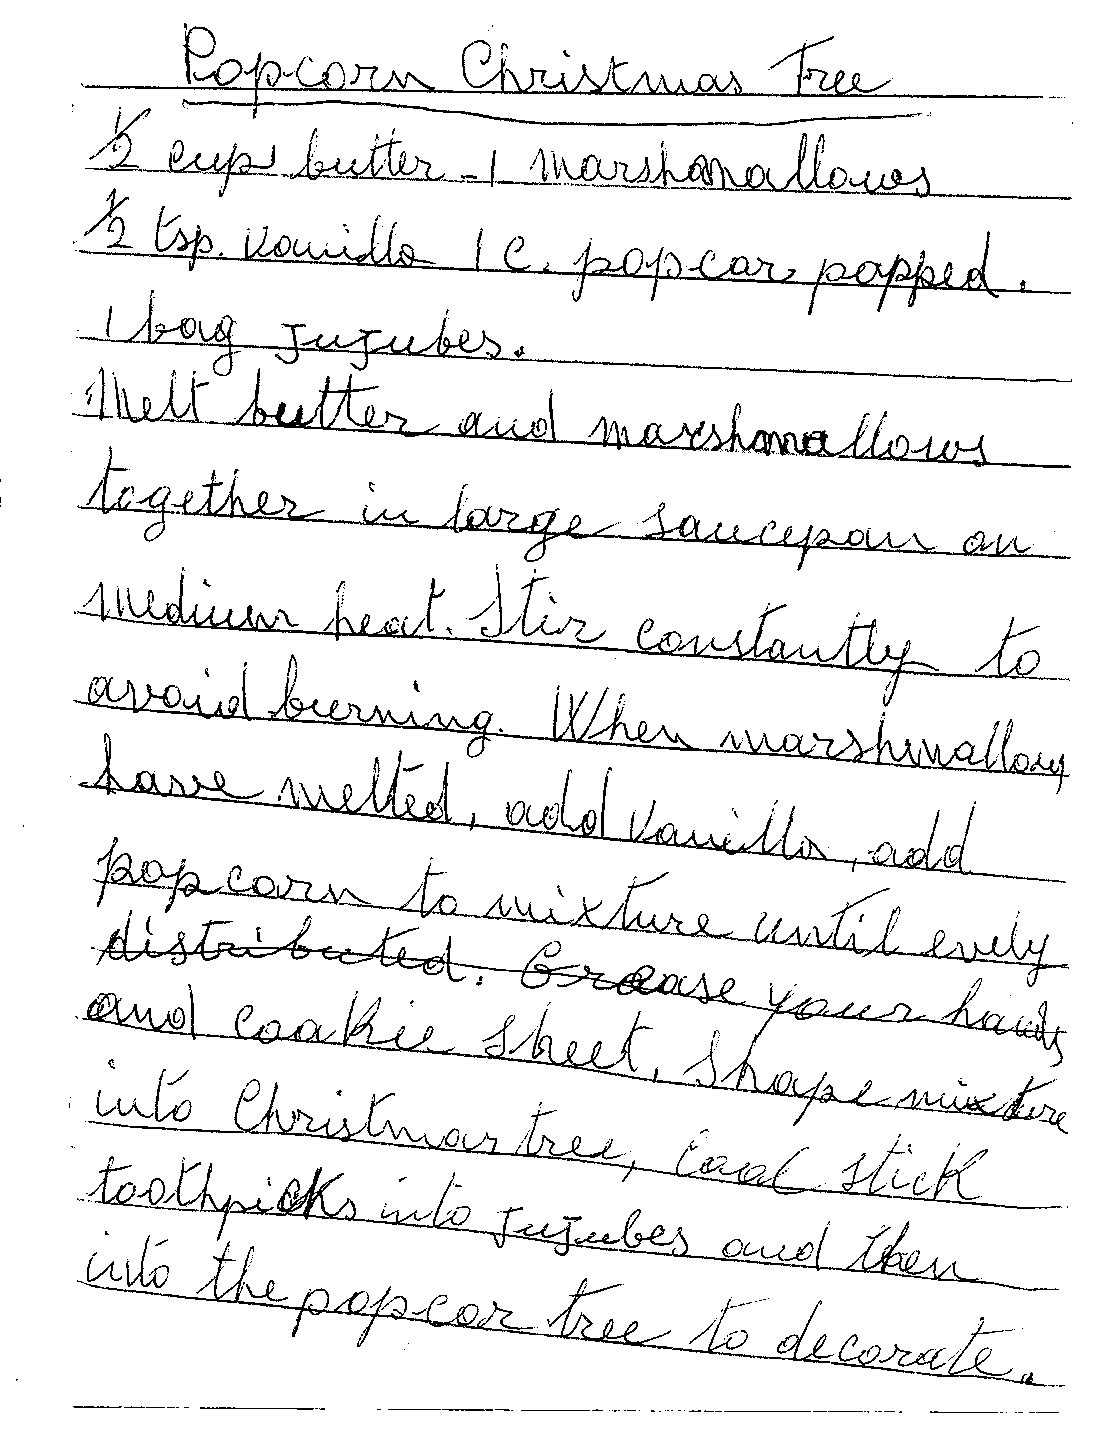 Popcorn Christmas Tree
1/2 cup butter - 1 marshmallows
1/2 tsp. vanilla 1 C. popcor popped.
1 bag jujubes.
Melt butter and marshmallows
together in large saucepan on
medium heat. Stir constantly to
avoid burning. When marshmallows
have melted, add vanilla, add
popcorn to mixture until evely
distributed. Grease your hands
and cookie sheet, shape mixture
into Christmas tree, cool stick
toothpicks into jujubes and then
into the popcor tree to decorate.